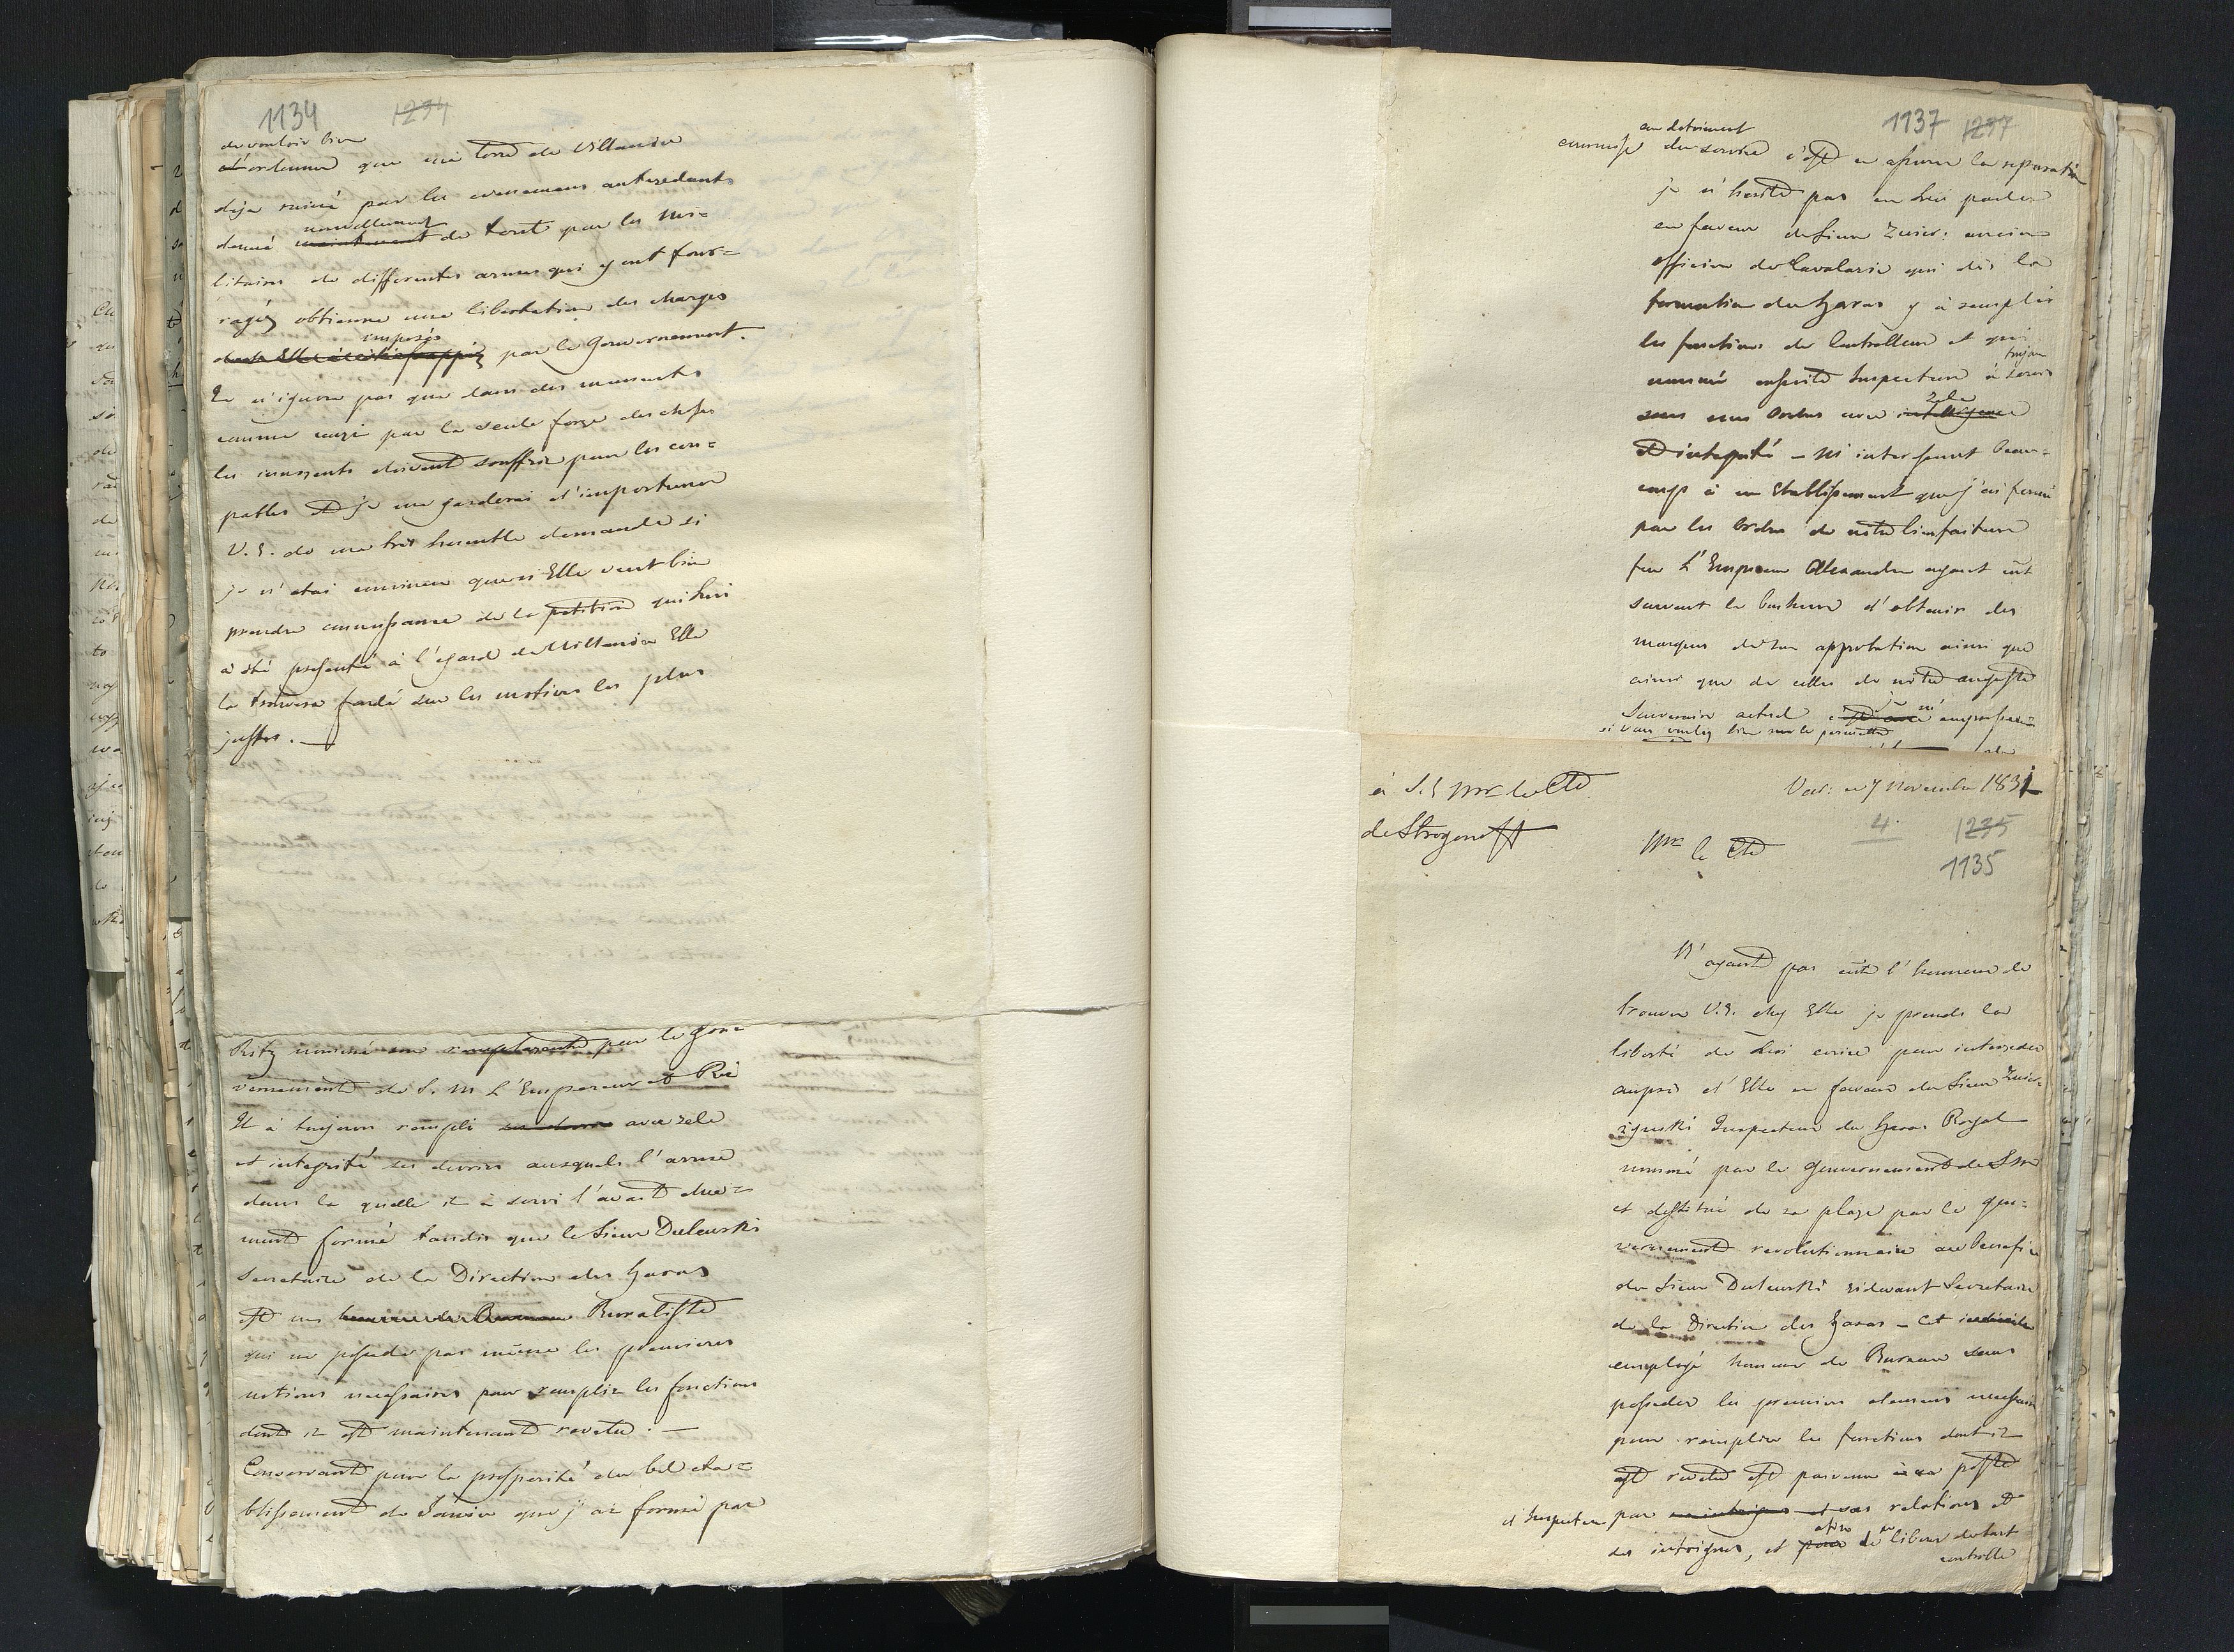 1134 1234
de vouloir bien
d'ordonner que ma terre de Villanow
deja ruiné par les evenemens antecedents
nouvellement
donné maintenant de toret par les mi=
litaires de differentes armes qui y ont four=
ragés obtienne une liberation des charges
imposés
par le Gouvernement.
Je n'ignore pas que dans des moments
comme ceuxi par la seule force des choses
les innocents doivent souffrir pour les cou=
pables et je me garderai d'importuner
V. E. de ma tres humble demande si
je n'etai convaincu que si Elle veut bien
prendre connaissance de la petition qui lui
à été presenté à l'egard de Willanow Elle
la trouvera fondé sur les motives les plus
justes. —
nommé son remplacent par le Gou=
vernement de S. M. L'Empereur et Roi
Il à toujours rempli avec zele
et integrité ses devoirs auxquels l'arme
dans la quelle il à servi l'avait due=
ment formé tandis que le Sieur Dulewski
Secretaire de la Direction des Haras
est un homme de Bureau Buraliste
qui ne possede pas même les premieres
notions necessaires pour remplir les fonctions
dont il est maintenant revetu. —
Conservant pour la prosperité du bel eta=
blissement de Janow que j'ai formé par
1137 1237
au detriment
du service c'est en assurer la reparation
je n'hesite pas en lui parler
en faveur du Sieur Zwier: ancien
officier de Cavalerie qui dès la
formation du Haras y à remplis
les fonctions de Controlleur et qui
toujour
nommé ensuite Inspecteur à servis
sous mes Ordres avec intelligence
zele
et integrité — M'interessant beau=
coup à un Etablissement que j'ai formé
par les Ordres de notre bienfaiteur
feu L'Empereur Alexandre ayant eut
souvent le bonheur d'obtenir des
marques de son approbation ainsi que
ainsi que de celles de notre auguste
Souverain actuel
si vous voulez bien me le permettre
à S. E. Mr le Cte
de Strogonoff
Var: ce 7 Novembre 1831
4. 1235
1135
Mr le Cte
N'ayant pas eute l'honneur de
trouver V. E. chez Elle je prends la
liberté de Lui ecrire pour interceder
auprès d'Elle en faveur du Sieur Zwier=
zynski Inspecteur du Haras Royal
nommé par le Gouvernement de S M
et destitué de sa place par le Gou=
vernement revolutionnaire au benefice
du Sieur Dulewski cidevant Secretaire
de la Direction des Haras — Cet
employé homme de Bureau sans
posseder les premiers elemens necessaires
pour remplire les fonctions dont il
est revetu est parvenu à sa poste
d'Inspecteur par ses intrigues et ses relations et
afin
ses intrigues, et pour de se liberer de tout
controlle